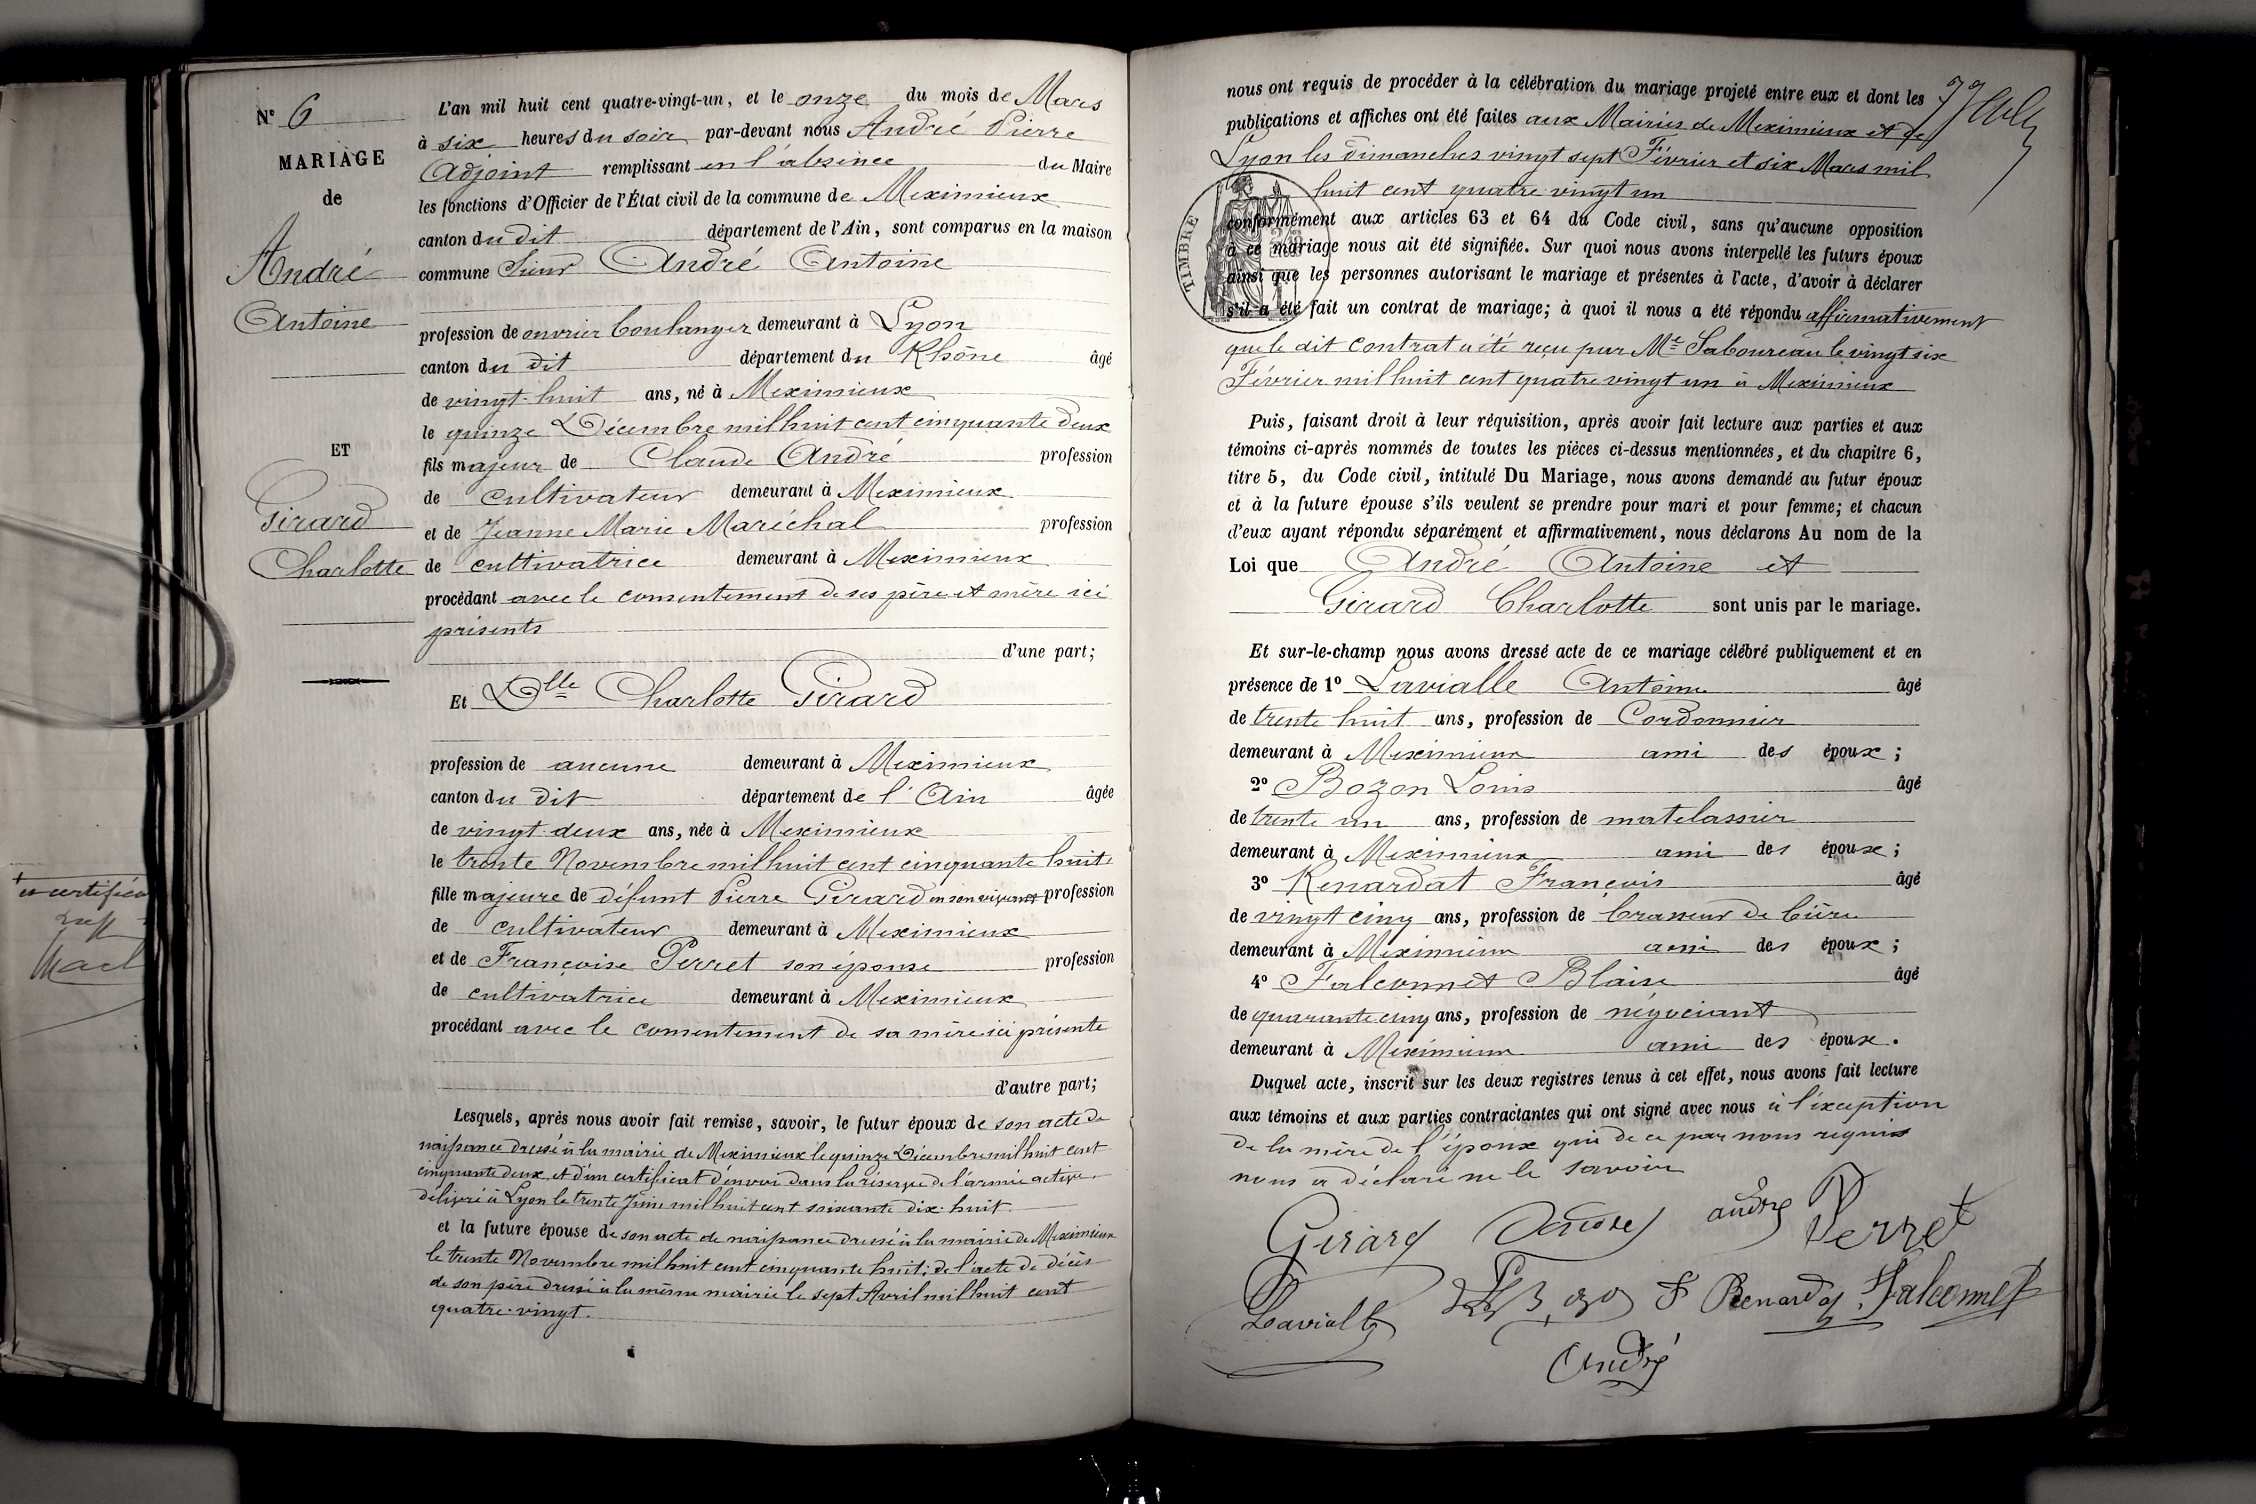 N° 6
MARIAGE
de
André
Antoine
ET
Girard
Charlotte
L'an mil huit cent quatre-vingt-un, et le onze du mois de Mars
à six heures du soir par-devant nous André Pierre
Adjoint remplissant en l'absence du Maire
les fonctions d'Officier de l'État civil de la commune de Meximieux
canton du dit département de l'Ain, sont comparus en la maison
commune Sieur André Antoine
profession de ouvrier boulanger demeurant à Lyon
canton du dit département du Rhône âgé
de vingt-huit ans, né à Meximieux
le quinze Décembre mil huit cent cinquante deux
fils majeur de Claude André profession
de cultivateur demeurant à Meximieux
et de Jeanne Marie Maréchal profession
de cultivatrice demeurant à Meximieux
procédant avec le consentement de ses père et mère ici
présents
d'une part;
Et Dlle Charlotte Girard
profession de aucune demeurant à Meximieux
canton du dit département de l'Ain âgée
de vingt-deux ans, née à Meximieux
le trente Novembre mil huit cent cinquante huit
fille majeure de défunt Pierre Girard en son vivant profession
de cultivateur demeurant à Meximieux
et de Françoise Perret son épouse profession
de cultivatrice demeurant à Meximieux
procédant avec le consentement de sa mère ici présente
d'autre part;
Lesquels, après nous avoir fait remise, savoir, le futur époux de son acte de
naissance dressé à la mairie de Meximieux le quinze Décembre mil huit cent
cinquante deux et d'un certificat d'envoi dans la réserve de l'armée active
délivré à Lyon le trente Juin mil huit cent soixante dix-huit
et la future épouse de son acte de naissance dressé à la mairie de Meximieux
le trente Novembre mil huit cent cinquante huit; de l'acte de décès
de son père dressé à la même mairie le sept Avril mil huit cent
quatre-vingt.
nous ont requis de procéder à la célébration du mariage projeté entre eux et dont les
publications et affiches ont été faites aux Mairies de Meximieux et de
Lyon les dimanches vingt sept Février et six Mars mil
huit cent quatre vingt un
TIMBRE
conformément aux articles 63 et 64 du Code civil, sans qu'aucune opposition
à ce mariage nous ait été signifiée. Sur quoi nous avons interpellé les futurs époux
ainsi que les personnes autorisant le mariage et présentes à l'acte, d'avoir à déclarer
s'il a été fait un contrat de mariage; à quoi il nous a été répondu affirmativement
que le dit contrat a été reçu par Me Saboureau le vingt six
Février mil huit cent quatre vingt un à Meximieux
Puis, faisant droit à leur réquisition, après avoir fait lecture aux parties et aux
témoins ci-après nommés de toutes les pièces ci-dessus mentionnées, et du chapitre 6,
titre 5, du Code civil, intitulé Du Mariage, nous avons demandé au futur époux
et à la future épouse s'ils veulent se prendre pour mari et pour femme; et chacun
d'eux ayant répondu séparément et affirmativement, nous déclarons Au nom de la
Loi que André Antoine et
Girard Charlotte sont unis par le mariage.
Et sur-le-champ nous avons dressé acte de ce mariage célébré publiquement et en
présence de 1° Lavialle Antoine âgé
de trente huit ans, profession de Cordonnier
demeurant à Meximieux ami des époux;
2° Bozon Louis âgé
de trente un ans, profession de matelassier
demeurant à Meximieux ami des époux;
3° Renardat François âgé
de vingt cinq ans, profession de brasseur de bière
demeurant à Meximieux ami des époux;
4° Falconnet Blaise âgé
de quarante cinq ans, profession de négociant
demeurant à Meximieux ami des époux.
Duquel acte, inscrit sur les deux registres tenus à cet effet, nous avons fait lecture
aux témoins et aux parties contractantes qui ont signé avec nous à l'exception
de la mère de l'époux qui de ce par nous requis
nous a déclaré ne le savoir
Girard André Perret
Lavialle F Renardat Falconnet
André